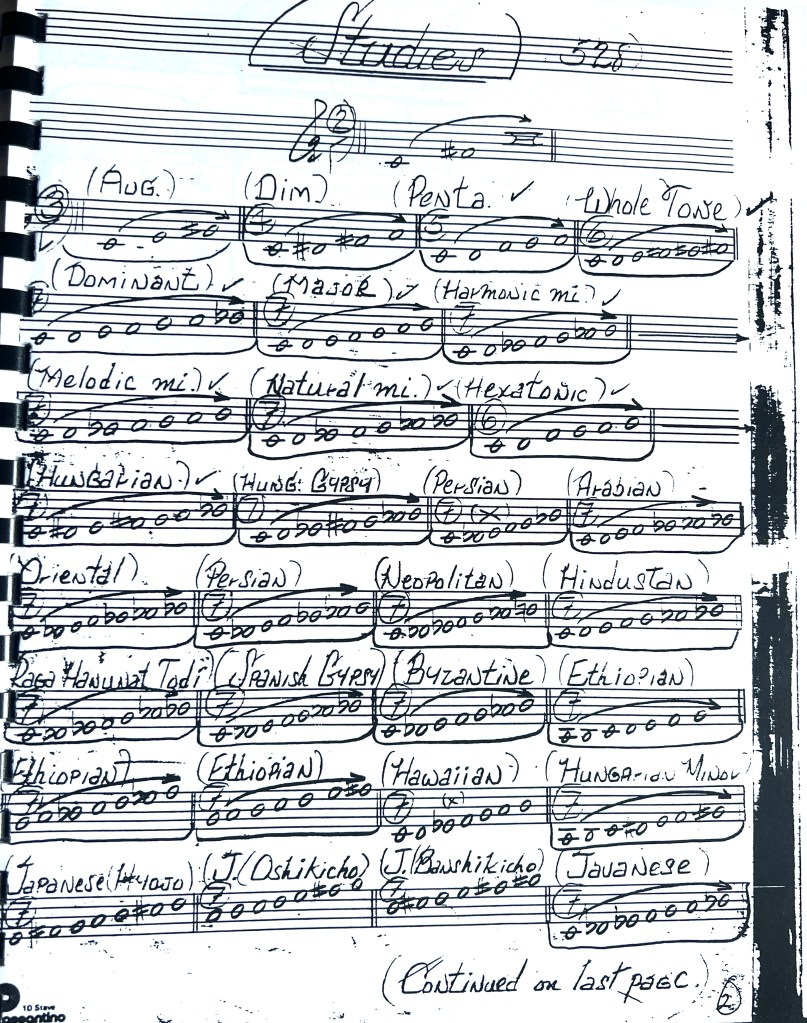 Studies 528
2
3 (Aug.) (Dim) (Penta.) ✓ (Whole Tone) ✓
4 5 6
(Dominant) ✓ (Major) ✓ (Harmonic mi.) ✓
7 7 7
(Melodic mi.) ✓ (Natural mi.) ✓ (Hexatonic) ✓
7 6
(Hungarian) ✓ (Hung. Gypsy) (Persian) (Arabian)
7 7 7 (x) 7
(Oriental) (Persian) (Neopolitan) (Hindustan)
7 7 7 7
Raga Hanumat Todi (Spanish Gypsy) (Byzantine) (Ethiopian)
7 7 7 7
(Ethiopian) (Ethiopian) (Hawaiian) (Hungarian Minor)
7 7 7 (x) 7
(Japanese (Hyojo) (J. (Oshikicho) (J. (Banshikicho) (Javanese)
7 7 7 7
(Continued on last page.)
2
10 Stave